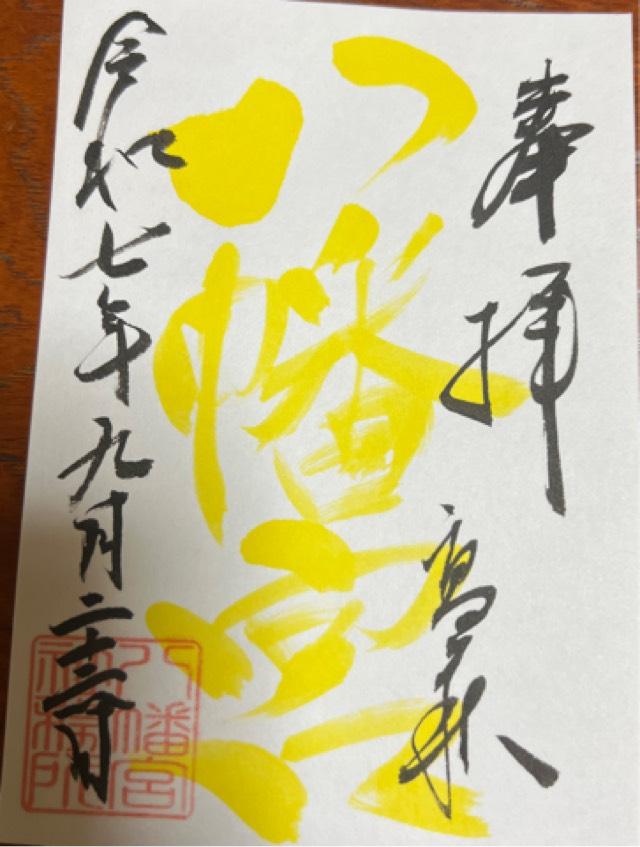 奉拝
高萩
八幡宮
令和七年九月二十三日
八幡宮